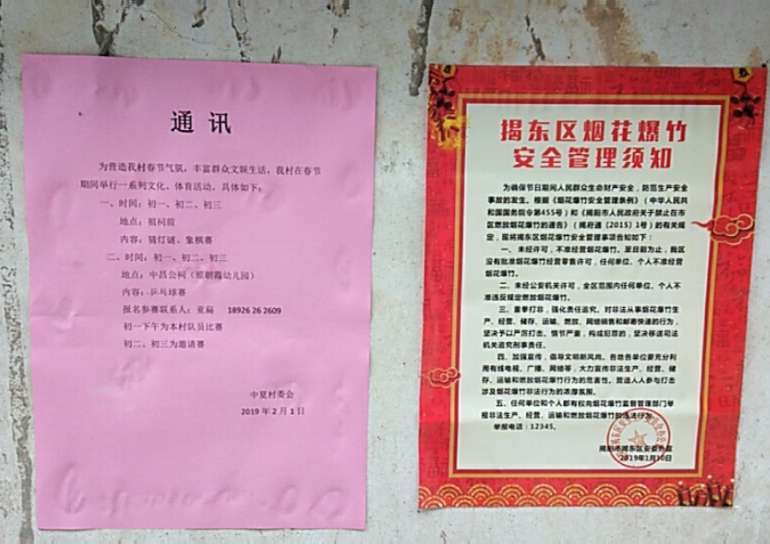 通 讯
为营造我村春节气氛，丰富群众文娱生活，我村在春节
期间举行一系列文化、体育活动，具体如下：
一、时间：初一、初二、初三
地点：祖祠前
内容：猜灯谜、象棋赛
二、时间：初一、初二、初三
地点：中昌公祠（原朝霞幼儿园）
内容：乒乓球赛
报名参赛联系人：亚扁 18926 26 2609
初一下午为本村队员比赛
初二、初三为邀请赛
中夏村委会
2019 年 2 月 1 日
揭东区烟花爆竹
安全管理须知
为确保节日期间人民群众生命财产安全，防范生产安全
事故的发生。根据《烟花爆竹安全管理条例》（中华人民共
和国国务院令第455号）和《揭阳市人民政府关于禁止在市
区燃放烟花爆竹的通告》（揭府通〔2015〕1号）的有关规
定，现将揭东区烟花爆竹安全管理事项告知如下：
一、未经许可，不准经营烟花爆竹。至目前为止，我区
没有批准烟花爆竹经营零售许可，任何单位、个人不准经营
烟花爆竹。
二、未经公安机关许可，全区范围内任何单位、个人不
准违反规定燃放烟花爆竹。
三、重拳打非，强化责任追究。对非法从事烟花爆竹生
产、经营、储存、运输、燃放、网络销售和邮寄快递的行为，
坚决予以严厉打击，情节严重，构成犯罪的，坚决移送司法
机关追究刑事责任。
四、加强宣传，倡导文明新风尚。各地各单位要充分利
用有线电视、广播、网络等，大力宣传非法生产、经营、储
存、运输和燃放烟花爆竹行为的危害性。营造人人参与打击
涉及烟花爆竹非法行为的浓厚氛围。
五、任何单位和个人都有权向烟花爆竹监督管理部门举
报非法生产、经营、运输和燃放烟花爆竹的违法行为。
举报电话：12345。
揭阳市揭东区安委办宣
2019年1月10日